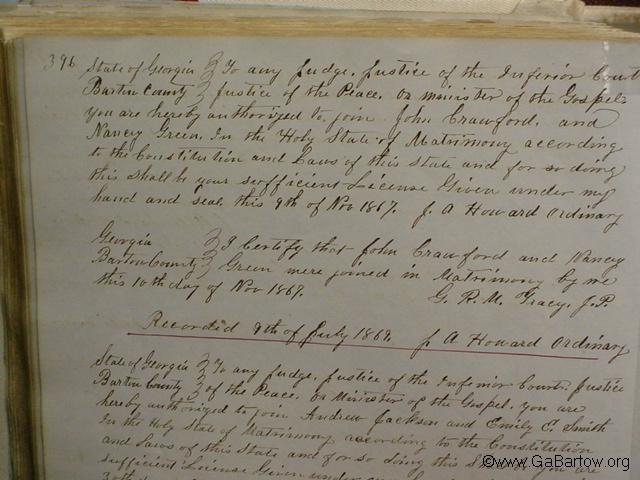 396
State of Georgia } To any Judge, Justice of the Inferior Court
Bartow County } Justice of the Peace, or minister of the Gospel
you are hereby authorized to join John Crawford, and
Nancy Green, In the Holy State of Matrimony according
to the Constitution and Laws of this State and for so doing
this shall be your sufficient License Given under my
hand and seal this 9th of Nov 1867. J. A Howard Ordinary
Georgia } I Certify that John Crawford and Nancy
Bartow County } Green were joined in Matrimony by me
this 10th day of Nov 1867. G. R. M. Tracy, J.P.
Recorded 9th of July 1869. J. A Howard Ordinary
State of Georgia } To any Judge, Justice of the Inferior Court, Justice
Bartow County } of the Peace, or Minister of the Gospel, you are
hereby authorized to join Andrew Jackson and Emily E. Smith
In the Holy State of Matrimony according to the Constitution
and Laws of this State and for so doing this shall be you are
sufficient License Given under
©www.GaBartow.org